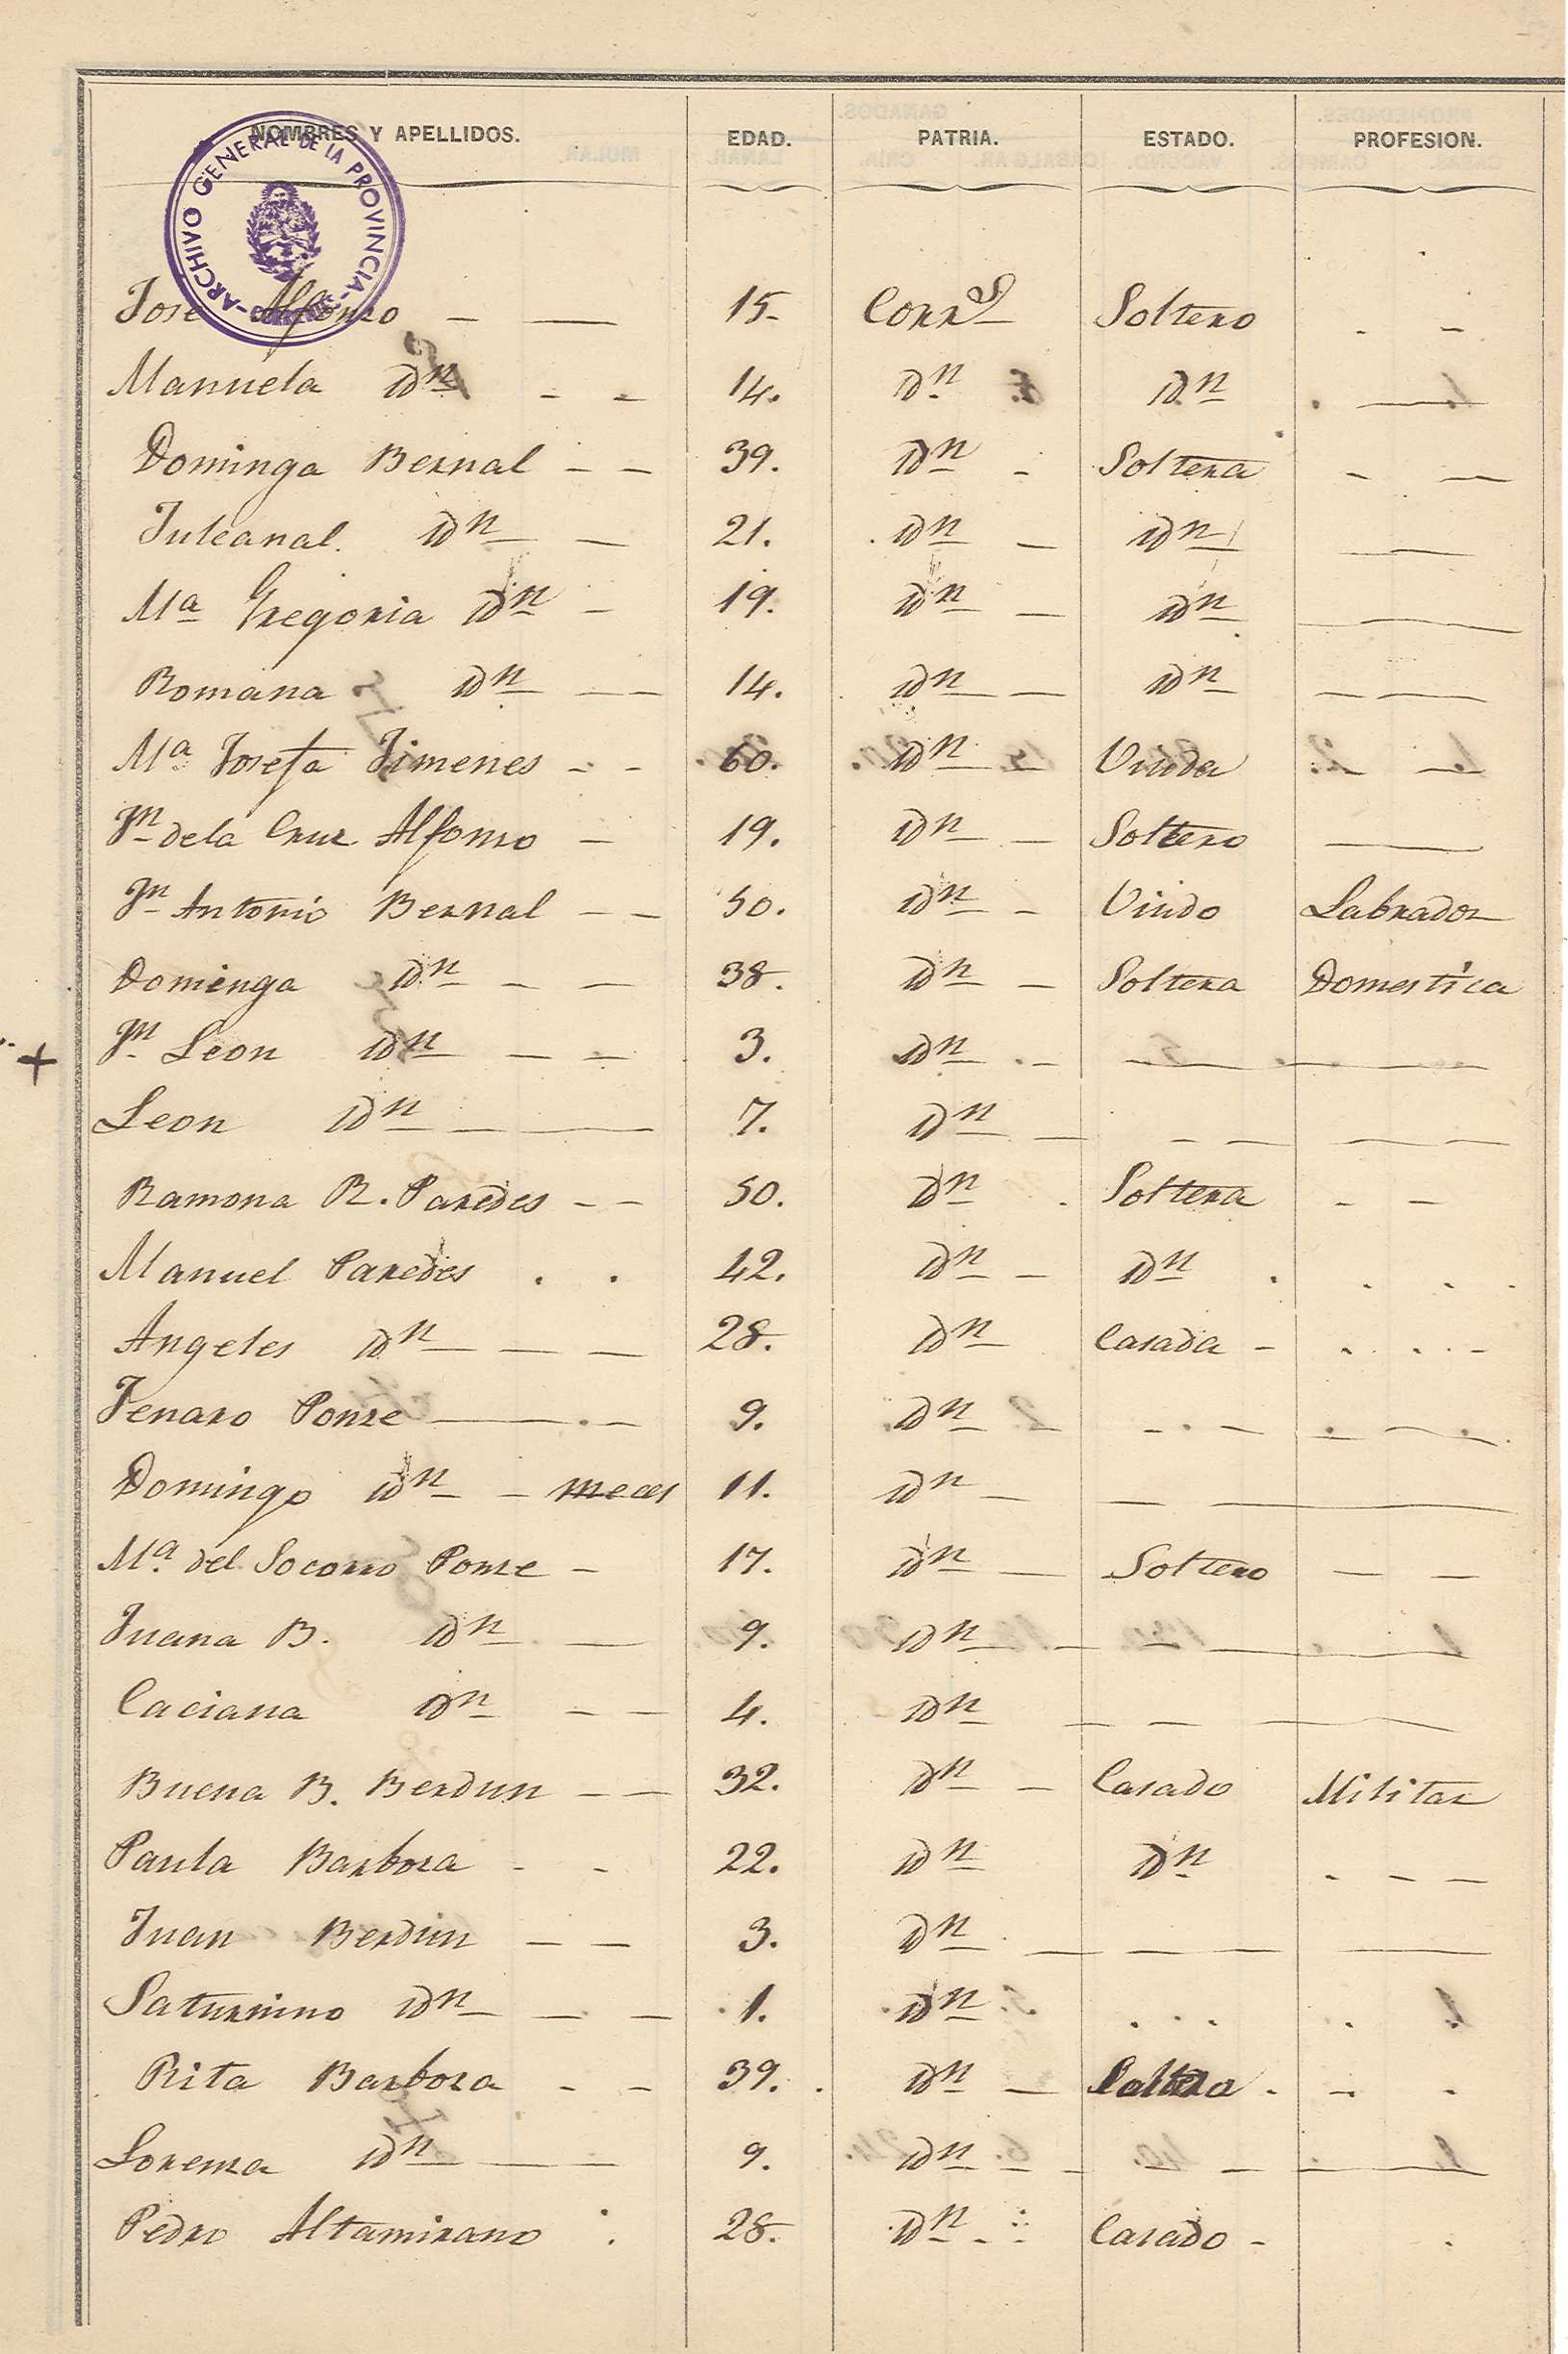 NOMBRES Y APELLIDOS. EDAD. PATRIA. ESTADO. PROFESION.
ARCHIVO GENERAL DE LA PROVINCIA
Jose Alfonso - — 15- Corr.s Soltero - -
Manuela Dn - - 14. Dn Dn —
Dominga Bernal - - 39. Dn - Soltera - —
Juleanal. Dn — 21. Dn — Dn —
Ma Gregoria Dn - 19. Dn — Dn —
Romana Dn - — 14. Dn — Dn — —
Ma Josefa Jimenes - - 60. Dn — Viuda — —
Jn dela Cruz Alfonso - 19. Dn - Soltero —
Jn Antonio Bernal - - 50. Dn - Viudo Labrador
Dominga Dn - — 38. Dn - Soltera Domestica
+ Jn Leon Dn — - 3. Dn - —
Leon Dn — — 7. Dn — - — — —
Ramona R. Paredes - - 50. Dn . Soltera - -
Manuel Paredes . . 42. Dn - Dn . . . .
Angeles Dn — — 28. Dn Casada - . . . -
Jenaro Ponse — . - 9. Dn — - . - . — .
Domingo Dn - meces 11. Dn — — —
Ma. del Socorro Ponse - 17. Dn — Soltero — —
Juana B. Dn — 9. Dn — — —
Caciana Dn - — 4. Dn — — —
Buena B. Berdun - — 32. Dn - Casado Militar
Paula Barbosa - - 22. Dn Dn - - -
Juan Berdun - - 3. Dn — — — —
Saturnino Dn — — 1. Dn . . . .
Rita Barbosa - - 39. . Dn — Soltera . - .
Lorensa Dn — - 9. Dn - - — — —
Pedro Altamirano . 28. Dn - Casado - .